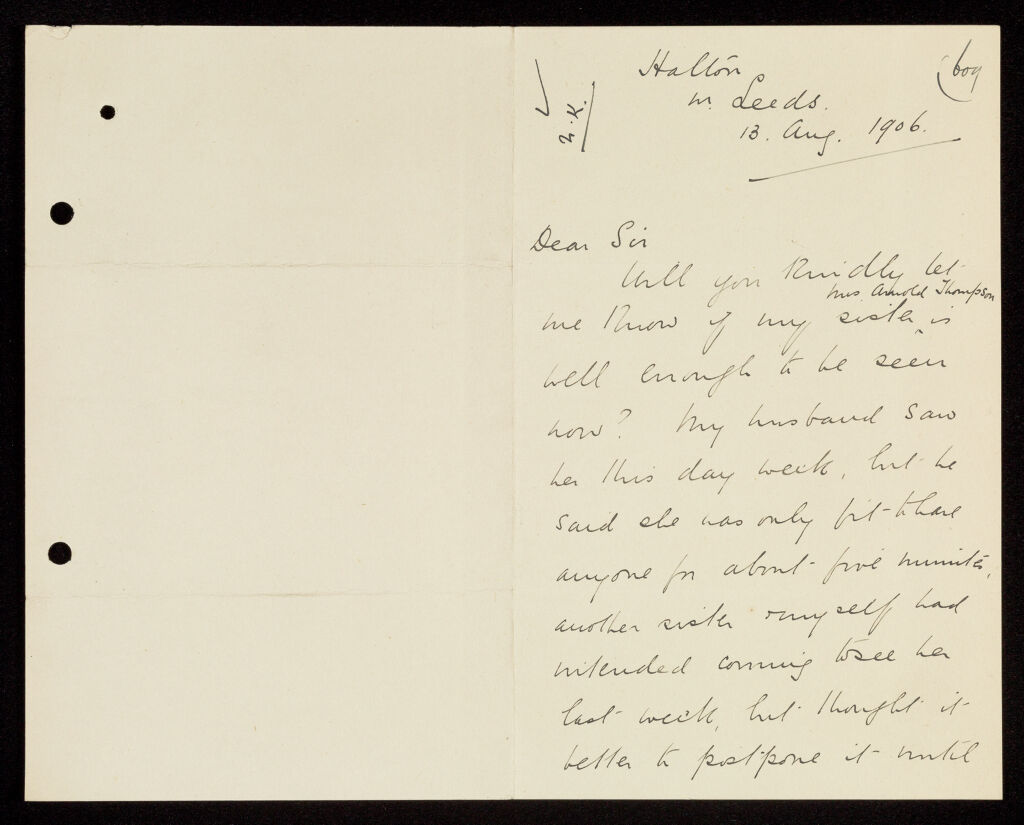 Halton
nr. Leeds.
13. Aug. 1906.
Dear Sir
Will you kindly let
me know if my sister Mrs. Arnold Thompson is
well enough to be seen
now? My husband saw
her this day week, but he
said she was only fit to have
anyone for about five minutes,
another sister & myself had
intended coming to see her
last week, but thought it
better to postpone it until